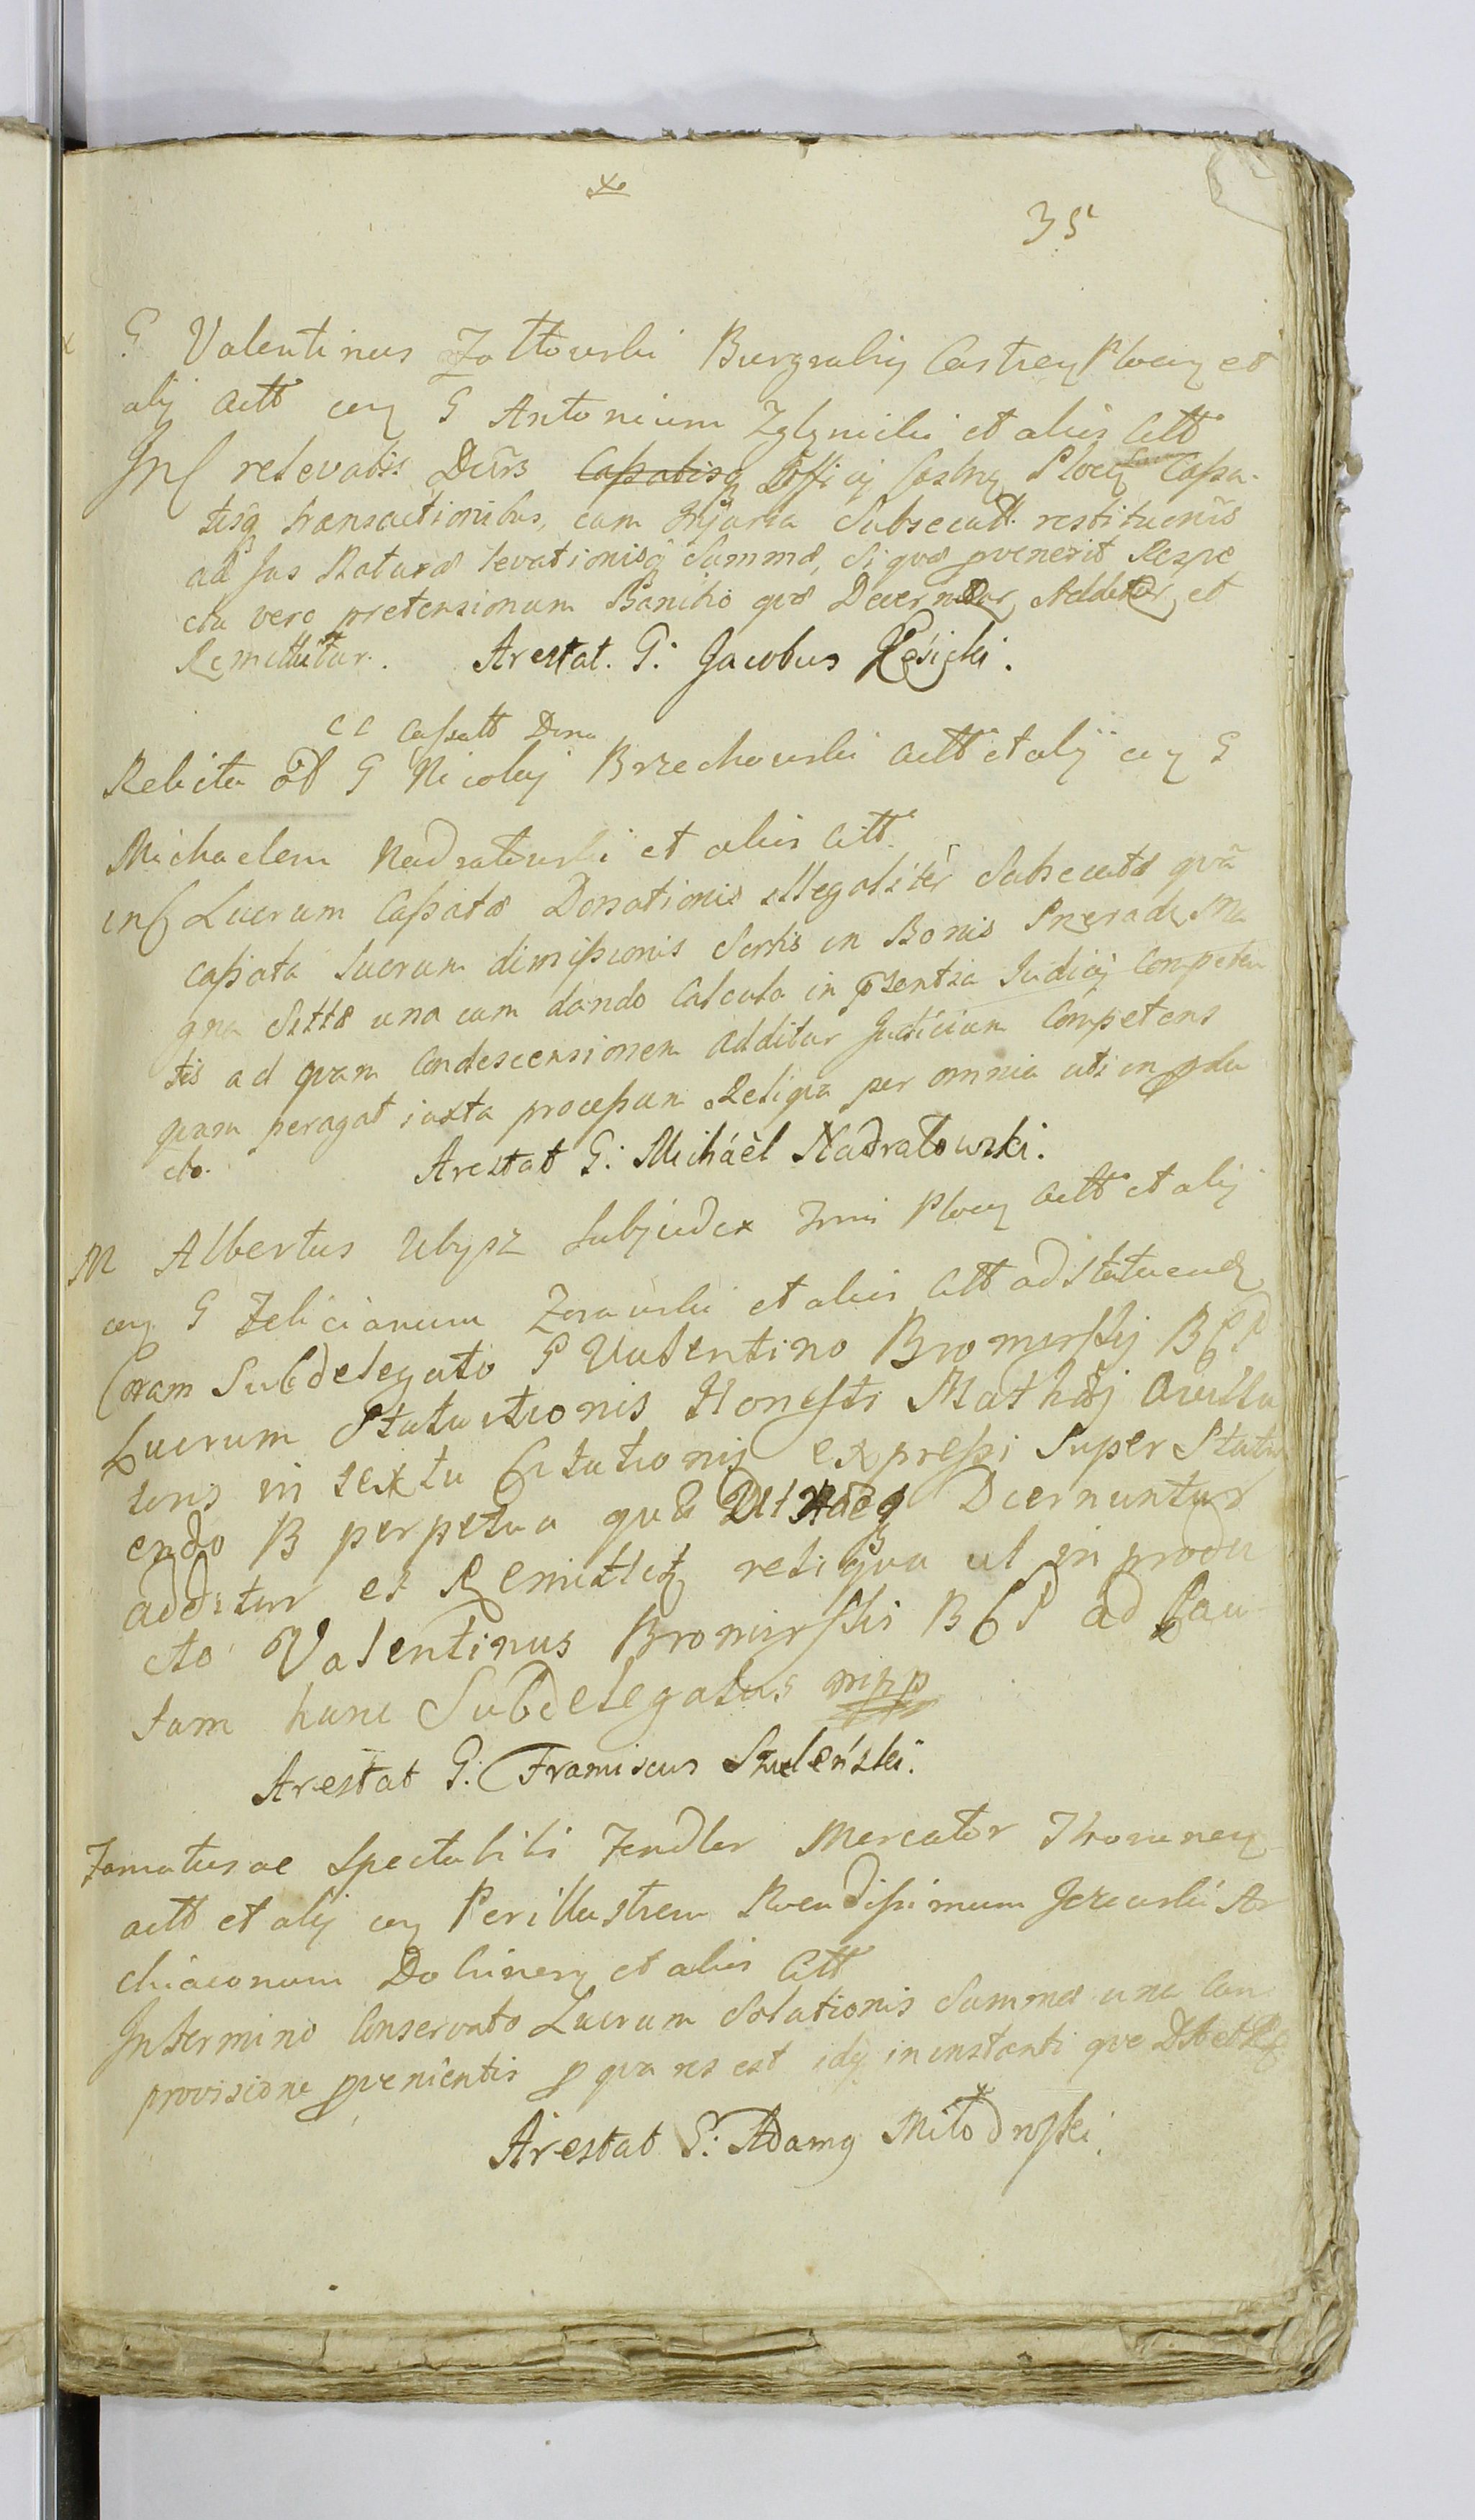 35
G Valentinus Zołtowski Burgrabiy Castren Plocen et
alij Actt cum G Antonium Zglynicki et alios Citt
Inf relevatis Decrs Cassatisq Officij Castren Plocen Cassa-
tisq transactionibus, cum Injuria Subsecutt. restituenis
ad Jus Naturæ levationisq Summæ, si quæ pvenerit Respe
ctu vero pretensionum Banitio quæ Decernitur, Additur et
Remittitur. Arestat. G: Jacobus Kęsicki.
CC Cassatt Dona
Relicta olt G Nicolaj Brzechowski Actt et alij cum G
Michaelem Nadratowski et alios Citt.
inf Lucrum Cassatæ Donationis illegaliter Subsecutæ quâ
cassata Lucrum dimissionis Sortis in Bonis Srzeradz Ma
gna Sittæ una cum dando Calculo in pzentia Judicij Competen
tis ad quam Condescensionem additur Judicium Competens
quam peragat iuxta processum Reliqua per omnia uti in produ
cto. Arestat G: Michäel Nadratowski.
M Albertus Ubysz Subjudex Trrii Plocen Actt et alij
cum G Felicianum Zorawski et alios Citt ad Statuend
Coram Subdelegato G Valentino Bromirskij BCP
Lucrum Statuitionis Honesti Mathæj
toris in textu Citationis expressi Super Statu
endo B perpetua quæ Decernuntur
additur et Remittitq reliqua ut in produ
cto Valentinus Bromirski BCP ad Cau-
sam hanc Subdelegatus mpp
Arestat G: Franciscus Szuleński.
Famatus ac Spectabilis Fendler Mercator Thorunen
actt et alij cum Perillustrem Rvendissimum Jezewski Ar
chidiaconum Dobrinen et alios Citt
In termino Conservato Lucrum Solutionis Summæ una Cum
provisione pvenientis p qua res est idq in instanti que Dtt et
Arestat G: Adamg Miłodroski.